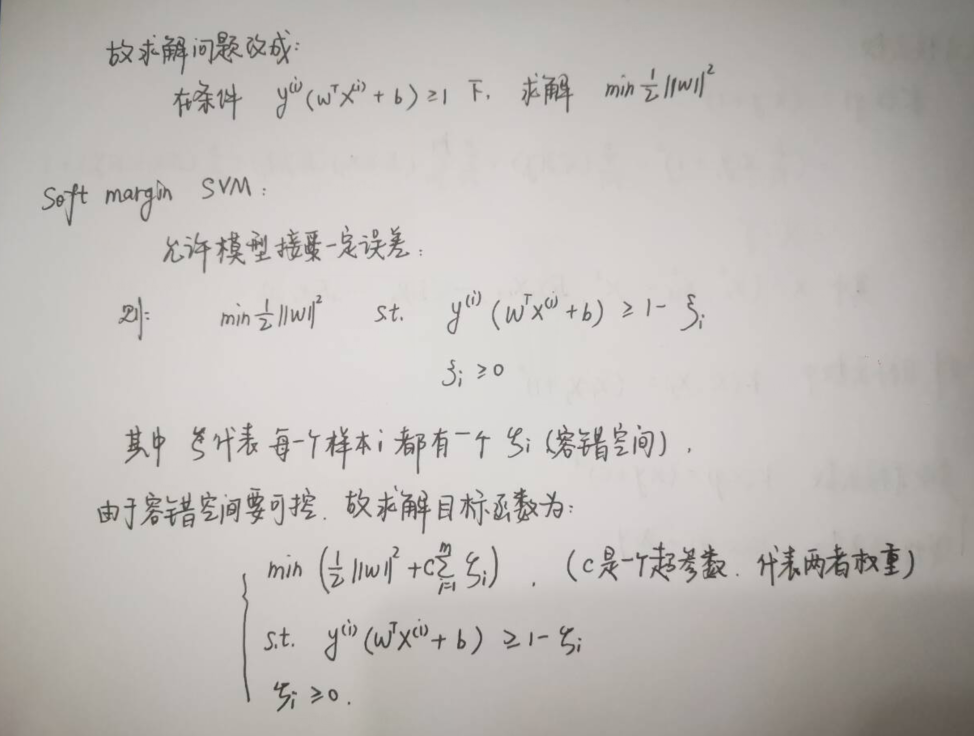 故求解问题改成:
在条件 y⁽ⁱ⁾(wᵀx⁽ⁱ⁾+b)≥1 下, 求解 min ½||w||²
Soft margin SVM:
允许模型接受一定误差:
则: min ½||w||² s.t. y⁽ⁱ⁾(wᵀx⁽ⁱ⁾+b) ≥ 1-ξᵢ
ξᵢ ≥ 0
其中 ξ代表每一个样本i都有一个ξᵢ(容错空间),
由于容错空间要可控, 故求解目标函数为:
min (½||w||² + C∑ᵢ₌₁ᵐ ξᵢ), (C是一个超参数, 代表两者权重)
s.t. y⁽ⁱ⁾(wᵀx⁽ⁱ⁾+b) ≥ 1-ξᵢ
ξᵢ ≥ 0.